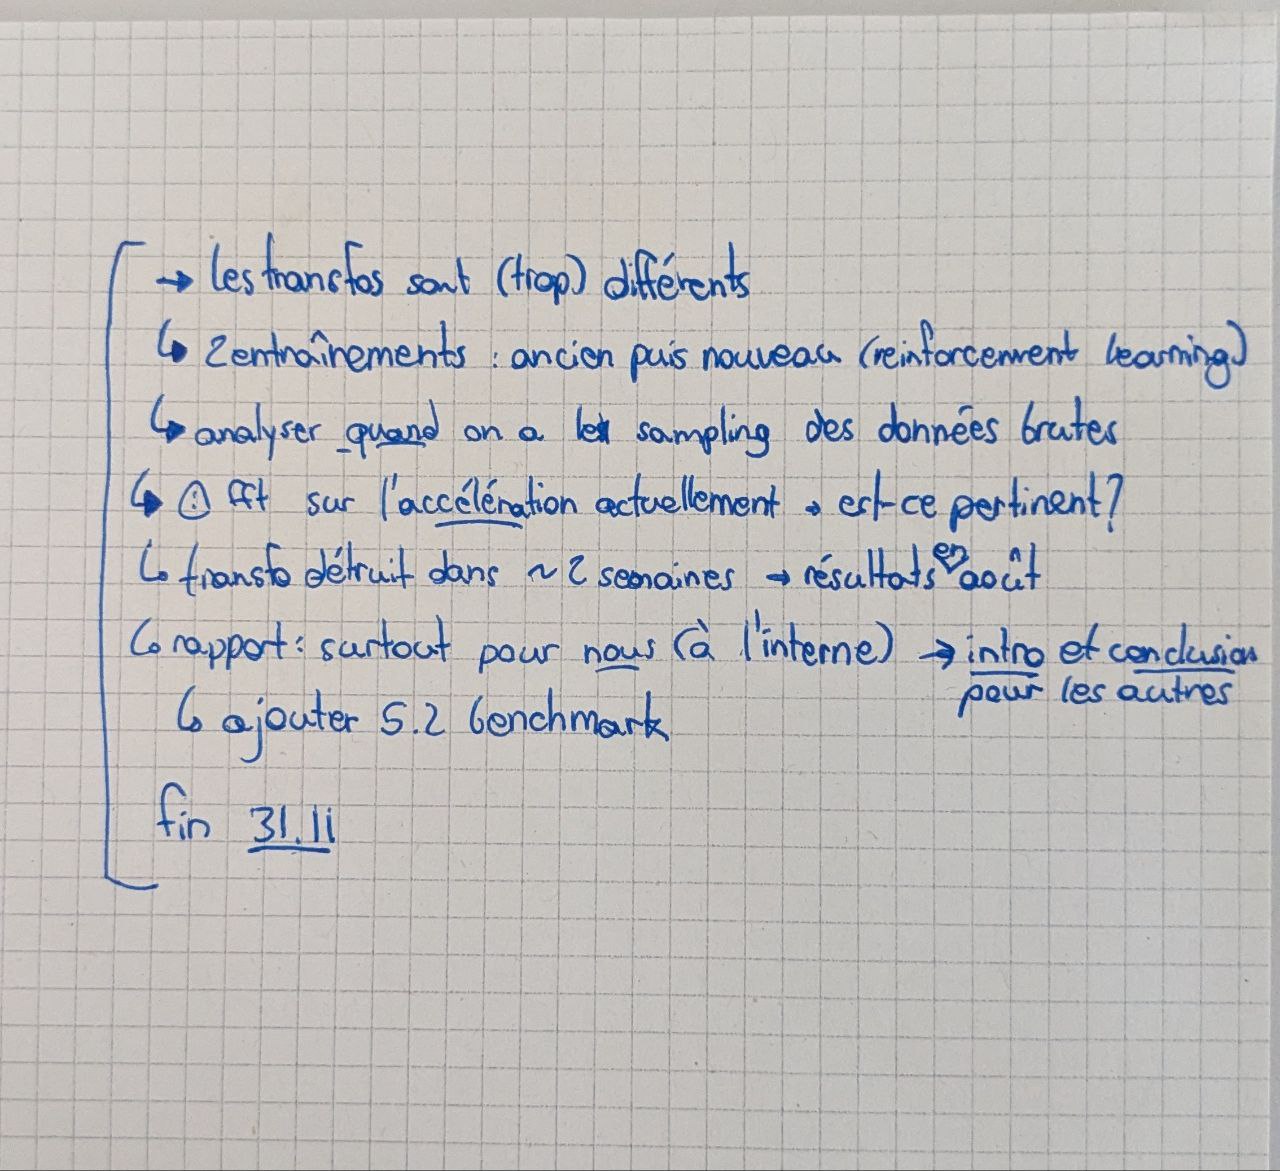 → les transfos sont (trop) différents
↳ 2 entraînements : ancien puis nouveau (reinforcement learning)
↳ analyser quand on a le sampling des données brutes
↳ ! fft sur l'accélération actuellement → est-ce pertinent?
↳ transfo détruit dans ~ 2 semaines → résultats en août
↳ rapport : surtout pour nous (à l'interne) → intro et conclusion
pour les autres
↳ ajouter 5.2 benchmark
fin 31.11